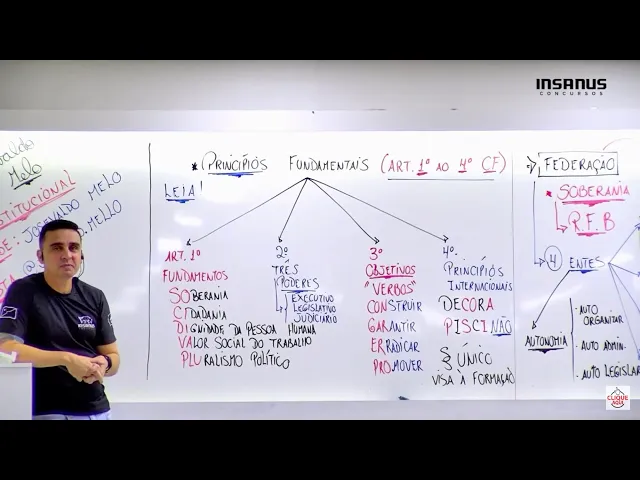 INSANUS
CONCURSOS
Melo
JOSEVALDO MELO
* PRINCIPIÓS FUNDAMENTAIS (ART. 1º AO 4º CF)
LEIA!
ART. 1º
FUNDAMENTOS
SOBERANIA
CIDADANIA
DIGNIDADE DA PESSOA HUMANA
VALOR SOCIAL DO TRABALHO
PLURALISMO POLÍTICO
2º
TRÊS
PODERES
EXECUTIVO
LEGISLATIVO
JUDICIÁRIO
3º
OBJETIVOS
"VERBOS"
CONSTRUIR
GARANTIR
ERRADICAR
PROMOVER
4º.
PRINCIPIÓS
INTERNACIONAIS
DECORA
PISCINÃO
§ ÚNICO
VISA À FORMAÇÃO
FEDERAÇÃO
* SOBERANIA
R.F.B
4 ENTES
AUTONOMIA
. AUTO
ORGANIZAR
. AUTO ADMIN.
. AUTO LEGISLAR
CLIQUE
AQUI